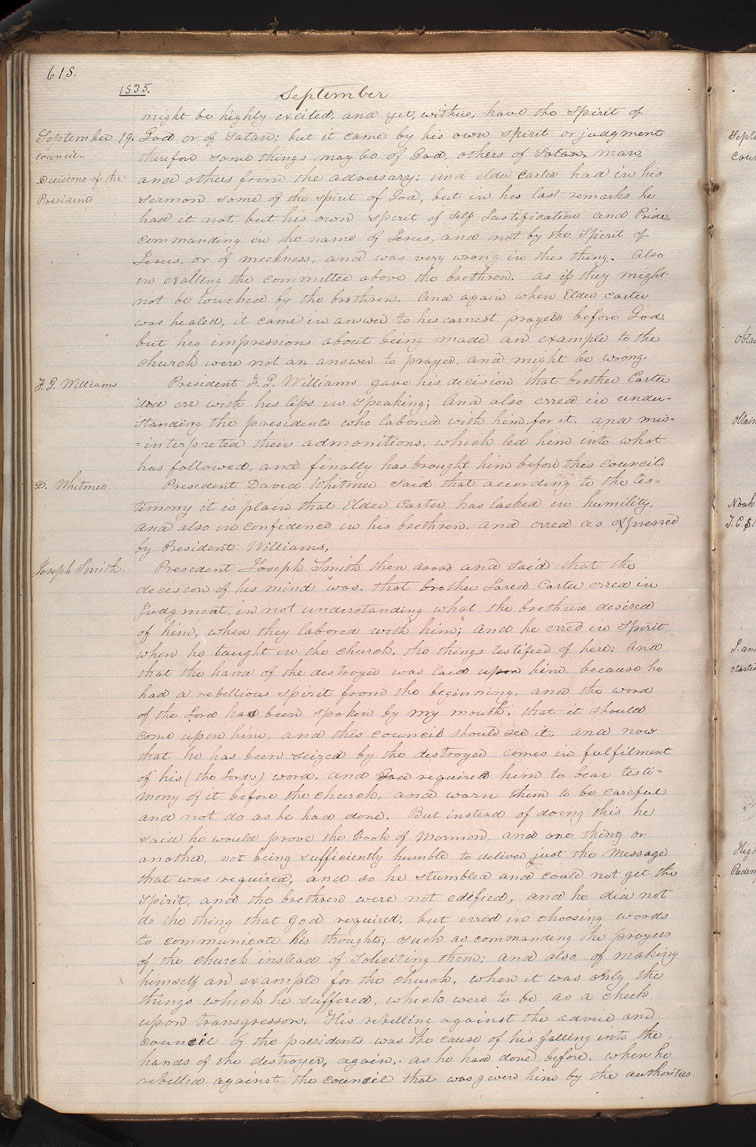 618.
1835.
September
might be highly excited, and yet, within, have the Spirit of
September 19.
God or of Satan; but it came by his own spirit or judgment
council.
therefore some things may be of God, others of Satan, man,
Decisions of the
and others from the adversary; and elder carter had in his
President
sermon some of the spirit of God, but in his last remarks he
had it not but his own spirit of Self Justification and Pride,
commanding in the name of Jesus, and not by the Spirit of
Jesus, or of meekness, and was very wrong in this thing. Also
in exalting the committee above the brethren. as if they might
not be touched by the brethren. And again when Elder carter
was healed, it came in answer to his earnest prayer before God
but his impressions about being made an example to the
church were not an answer to prayer, and might be wrong.
F. G. Williams
President F. G. Williams gave his decision that brother Carter
did err with his lips in speaking; And also erred in under-
standing the presidents who labored with him for it. and mis=
=interpreted their admonitions, which led him into what
has followed, and finally has brought him before this council.
D. Whitmer
President David Whitmer said that according to the tes=
timony it is plain that Elder Carter has lacked in humility.
and also in confidence in his brethren. and erred as expressed
by President Williams,
Joseph Smith
President Joseph Smith then arose and said that the
decision of his mind was, that brother Jared Carter erred in
Judgment, in not understanding what the brethren desired
of him, when they labored with him; And he erred in Spirit
when he taught in the church, the things testified of here; And
that the hand of the destroyer was laid upon him because he
had a rebellious spirit from the beginning, and the word
of the Lord had been spoken by my mouth, that it should
come upon him, and this council should see it. and now
that he has been seized by the destroyer comes in fulfilment
of his (the Lords) word, and God required him to bear testi=
mony of it before the church, and warn them to be careful
and not do as he had done. But instead of doing this he
said he would prove the Book of Mormon, and one thing or
another, not being sufficiently humble to deliver just the Message
that was required, and so he stumbled and could not get the
spirit, and the brethren were not edified, and he did not
do the thing that God required, but erred in choosing words
to communicate his thoughts; such as commanding the prayers
of the church instead of Soliciting them; and also of making
himself an example for the church, when it was only the
things which he suffered, which were to be as a check
upon transgressors. His rebelling against the advice and
council of the presidents was the cause of his falling into the
hands of the destroyer, again, as he had done before. when he
rebelled against the council that was given him by the authorities